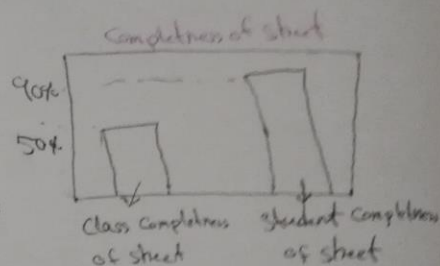 Completness of sheet
90%
50%
Class Completness
of sheet
Student Completness
of sheet